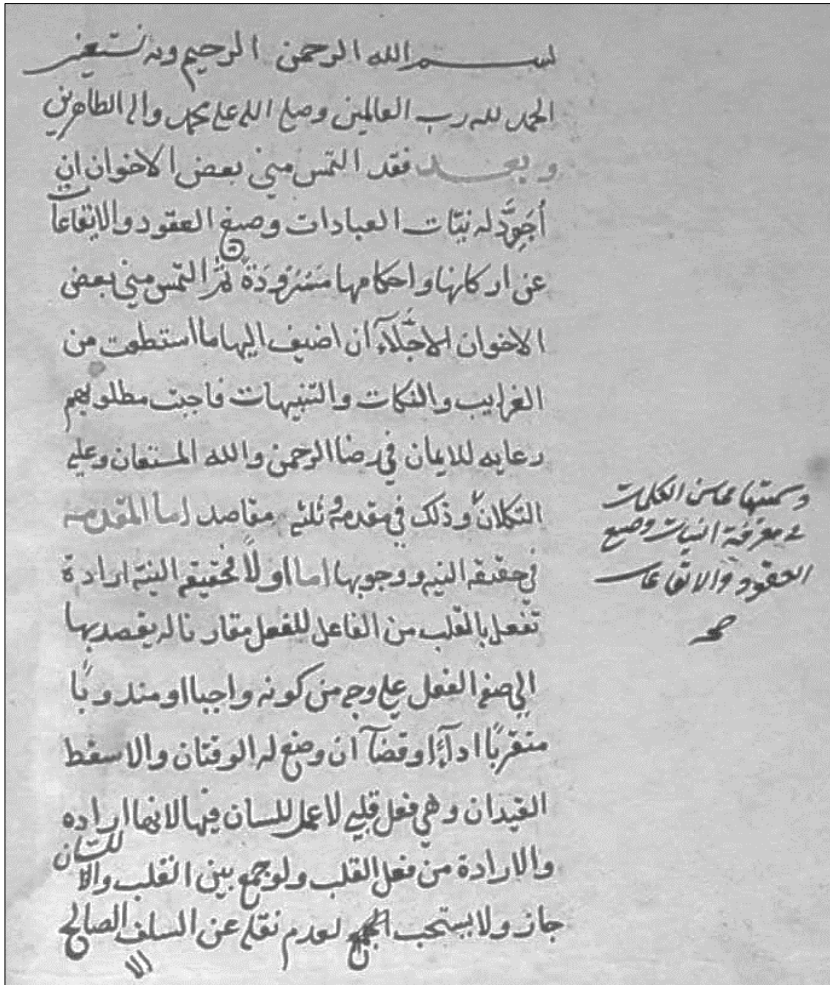 بسم الله الرحمن الرحيم وبه نستعين
الحمد لله رب العالمين وصلى الله على محمد واله الطاهرين
وبعد فقد التمس مني بعض الاخوان ان
أجرد له نيات العبادات وصيغ العقود والايقاعات
عن اركانها واحكامها ثم التمس مني بعض
الاخوان الاجلّاء أن اضيف اليها ما استطعت من
الغرايب والنكات والتنبيهات فاجبت مطلوبهم
رعايه للايمان في رضا الرحمن والله المستعان وعليه
التكلان وذلك في مقدمه وثلثه مقاصد اما المقدمه
في حقيقه النيه ووجوبها اما اولاً فحقيقه النية ارادة
تفعل بالقلب من الفاعل للفعل مقارنا له يقصد بها
الى الفعل على وجه من كونه واجبا او مندوبًا
متقربًا اداءً او قضاءً ان وضع له الوقتان والا سقط
القيدان وهي فعل قلبي لا عمل للسان فيها لانها اراده
والارادة من فعل القلب ولو جمع بين القلب واللسان
جاز ولا يستحب الجمع لعدم نقله عن السلف الصالح
الا
وسمتها محاسن الكلمات
في معرفة النيات وصيغ
العقود والايقاعات
صح